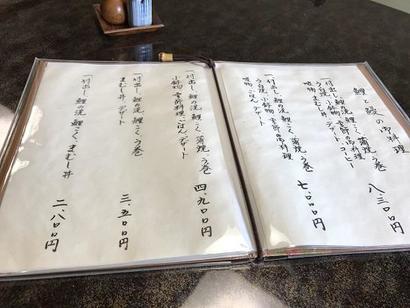 鯉と鰻の御料理
一付出し 鯉の洗 鯉こく 蒲焼 う巻
う白焼 小鉢物 季節御料理
吸物 ごはん デザート コーヒー
八.三〇〇円
一付出し 鯉の洗 鯉こく 蒲焼 う巻
う白焼 小鉢物 季節御料理
吸物 ごはん デザート
七.〇〇〇円
一付出し 鯉の洗 鯉こく 蒲焼 う巻
小鉢物 季節料理 ごはん デザート
四.九〇〇円
一付出し 鯉の洗 鯉こく う巻
まむし丼 デザート
三.五〇〇円
一付出し 鯉の洗 鯉こく まむし丼
二.八〇〇円